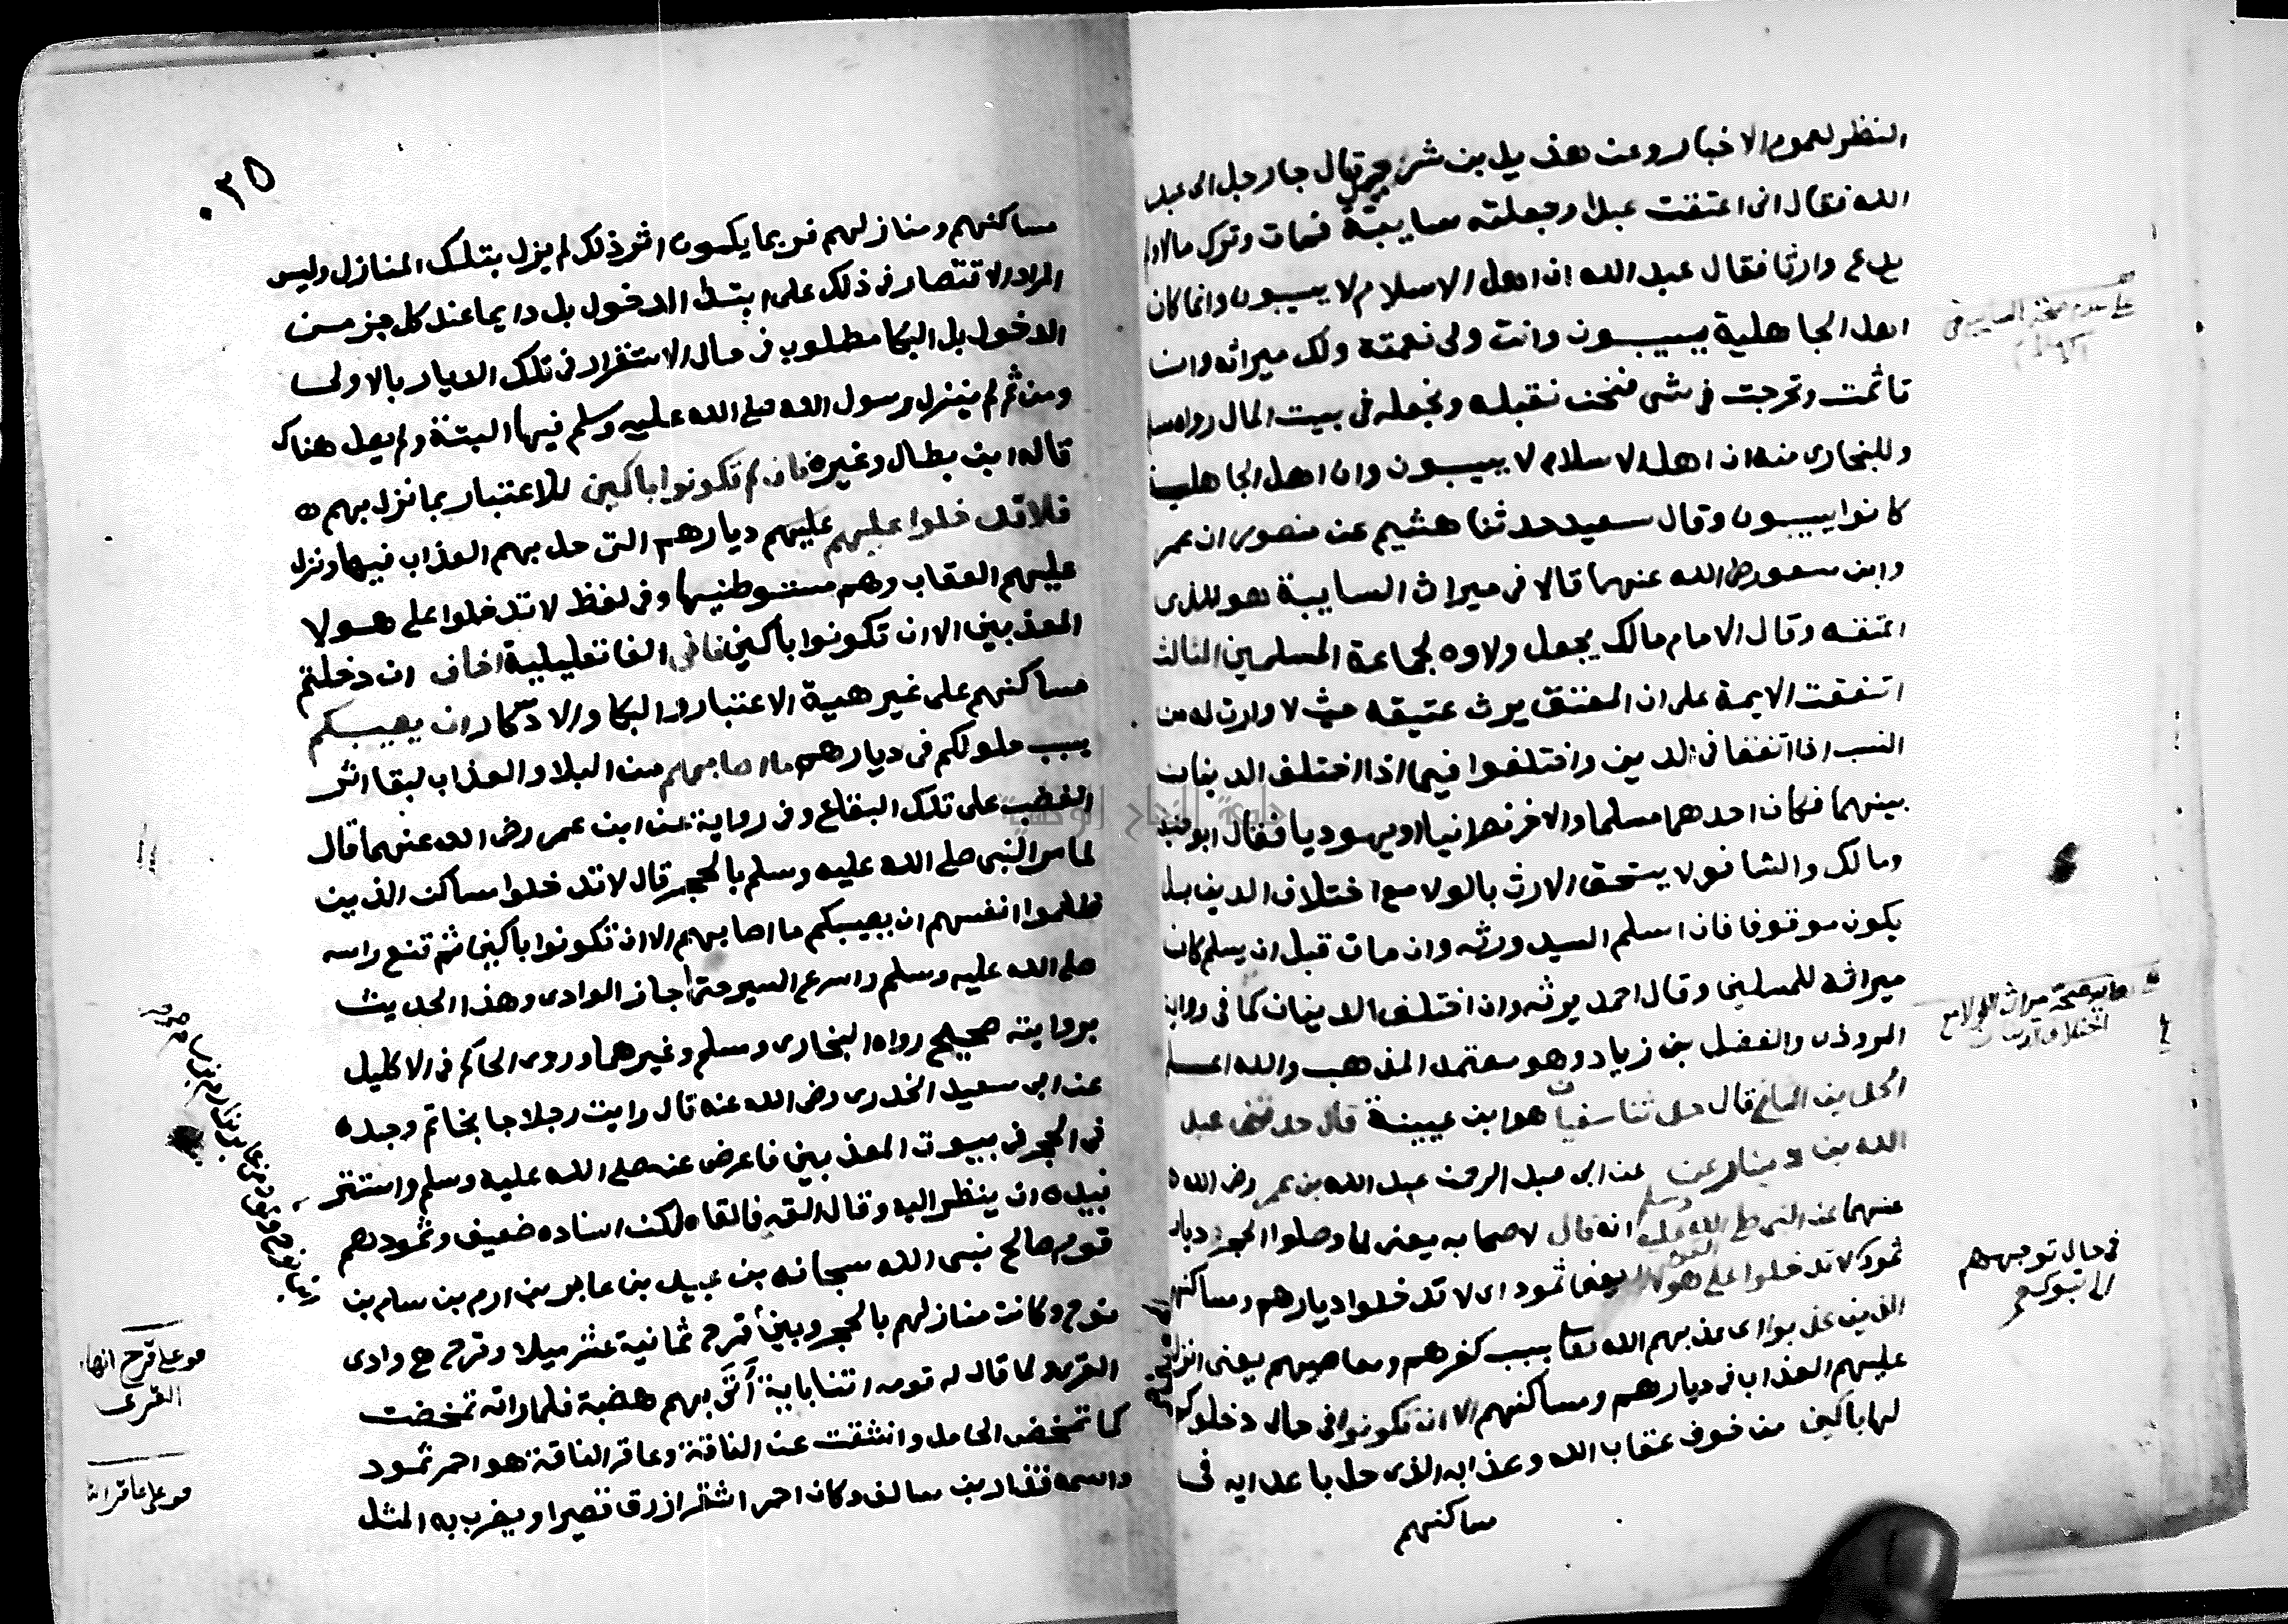 النظر لعموم الاخبار وعن هذيل بن شرحبيل قال جا رجل الى عبد
الله فقال انى اعتقت عبدا وجعلته سايبة فمات وترك مالا ولم
يدع وارثا فقال عبد الله ان اهل الاسلام لا يسيبون وانما كان
اهل الجاهلية يسيبون وانت ولى نعمته ولك ميراثه وان
تاثمت وتحرجت فى شى فنحن نقبله ونجعله فى بيت المال رواه مسلم
وللبخارى منه ان اهل الاسلام لا يسيبون وان اهل الجاهلية
كانوا يسيبون وقال سعيد حدثنا هشيم عن منصور ان عمر
وابن مسعود رضى الله عنهما قالا فى ميراث السايبة هو للذى
اعتقه وقال الامام مالك يجعل ولاوه لجماعة المسلمين الثالث
اتفقت الايمة على ان المعتق يرث عتيقه حيث لا وارث له من
النسب اذا اتفقا فى الدين واختلفوا فيما اذا اختلف الدينان
بينهما فكان احدهما مسلما والاخر نصرانيا او يهوديا فقال ابو حنيفة
ومالك والشافعى لا يستحق الارث بالولا مع اختلاف الدين بل
يكون موقوفا فان اسلم السيد ورثه وان مات قبل ان يسلم كان
ميراثه للمسلمين وقال احمد يرثه وان اختلف الدينان كما فى رواية
المروذى والفضل بن زياد وهو معتمد المذهب والله اعلم
قال حدثنا سفيان هو ابن عيينة قال حدثنى عبد
الله بن دينار عن عن ابى عبد الرحمن عبد الله بن عمر رضى الله
عنهما عن النبى صلى الله عليه وسلم انه قال لاصحابه يعنى لما وصلوا الحجر ديار
ثمود لا تدخلوا على هولا القوم يعنى ثمود اى لا تدخلوا ديارهم ومساكنهم
الذين عذبوا اى عذبهم الله تعا بسبب كفرهم ومعاصيهم يعنى انزل
عليهم العذاب فى ديارهم ومساكنهم الا ان تكونوا فى حال دخولكم
لها باكين من خوف عقاب الله وعذابه الذى حل باعدايه فى
مساكنهم
فى حال توجههم
الى تبوك
٣٥
مساكنهم ومنازلهم فربما يكون اثر ذلك لم يزل بتلك المنازل وليس
المراد الاقتصار فى ذلك على ابتدا الدخول بل دايما عند كل جز من
الدخول بل البكا مطلوب فى حال الاستقرار فى تلك الديار بالاولى
ومن ثم لم ينزل رسول الله صلى الله عليه وسلم فيها البتة ولم يصل هناك
قاله ابن بطال وغيره فان لم تكونوا باكين للاعتبار بما نزل بهم
فلا تدخلوا عليهم عليهم ديارهم التى حل بهم العذاب فيها ونزل
عليهم العقاب وهم مستوطنيها وفى لفظ لا تدخلوا على هولا
المعذبين الا ان تكونوا باكين فانى الفا تعليلية اخاف ان دخلتم
مساكنهم على غير هية الاعتبار والبكا والادكار ان يصيبكم
بسبب حلولكم فى ديارهم ما اصابهم من البلا والعذاب لبقا اثر
الغضب على تلك البقاع وفى رواية عن ابن عمر رضى الله عنهما قال
لما مر النبى صلى الله عليه وسلم بالحجر قال لا تدخلوا مساكن الذين
ظلموا انفسهم ان يصيبكم ما اصابهم الا ان تكونوا باكين ثم قنع راسه
صلى الله عليه وسلم واسرع السير حتى اجاز الوادى وهذا الحديث
بروايته صحيح رواه البخارى ومسلم وغيرهما وروى الحاكم فى الاكليل
عن ابى سعيد الخدرى رضى الله عنه قال رايت رجلا جا بخاتم وجده
فى الحجر فى بيوت المعذبين فاعرض عنه صلى الله عليه وسلم واستتر
بيده ان ينظر اليه وقال القه فالقاه لكن اسناده ضعيف وثمود هم
قوم صالح نبى الله سبحانه بن عبيد بن عابر بن ارم بن سام بن
نوح وكانت منازلهم بالحجر وبين قرح ثمانية عشر ميلا وقرح هى وادى
القرى ولما قال له قومه اتنا باية أتى بهم هضبة فلما راته تمخضت
كما تمخض الحامل وانشقت عن الناقة وعاقر الناقة هو احمر ثمود
واسمه قدار بن سالف وكان احمر اشقر ازرق قصيرا ويضرب به المثل
قرح انها
القرى